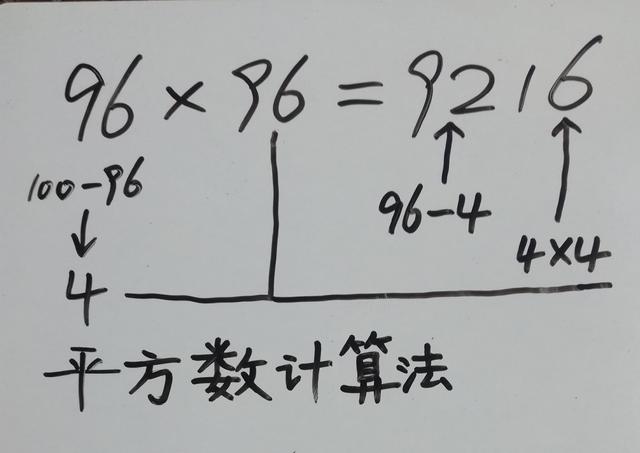 96×96=9216
100-96
96-4
4×4
4
平方数计算法